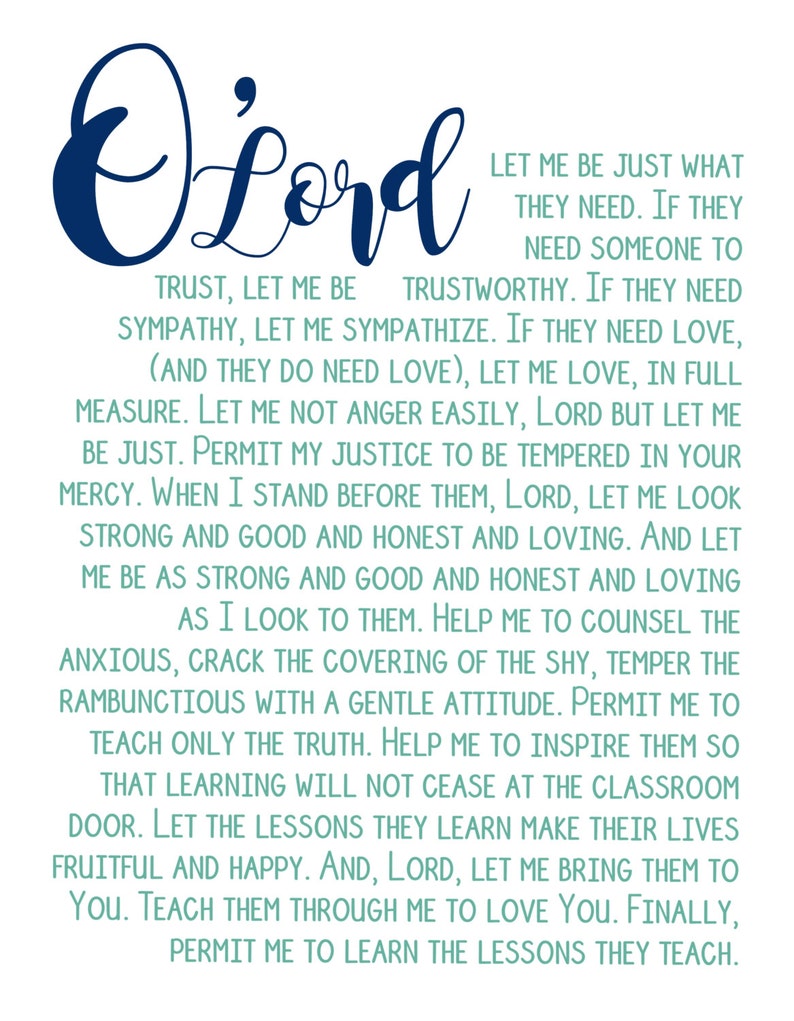 O'Lord
let me be just what
they need. If they
need someone to
trust, let me be trustworthy. If they need
sympathy, let me sympathize. If they need love,
(and they do need love), let me love, in full
measure. Let me not anger easily, Lord but let me
be just. Permit my justice to be tempered in your
mercy. When I stand before them, Lord, let me look
strong and good and honest and loving. And let
me be as strong and good and honest and loving
as I look to them. Help me to counsel the
anxious, crack the covering of the shy, temper the
rambunctious with a gentle attitude. Permit me to
teach only the truth. Help me to inspire them so
that learning will not cease at the classroom
door. Let the lessons they learn make their lives
fruitful and happy. And, Lord, let me bring them to
You. Teach them through me to love You. Finally,
permit me to learn the lessons they teach.